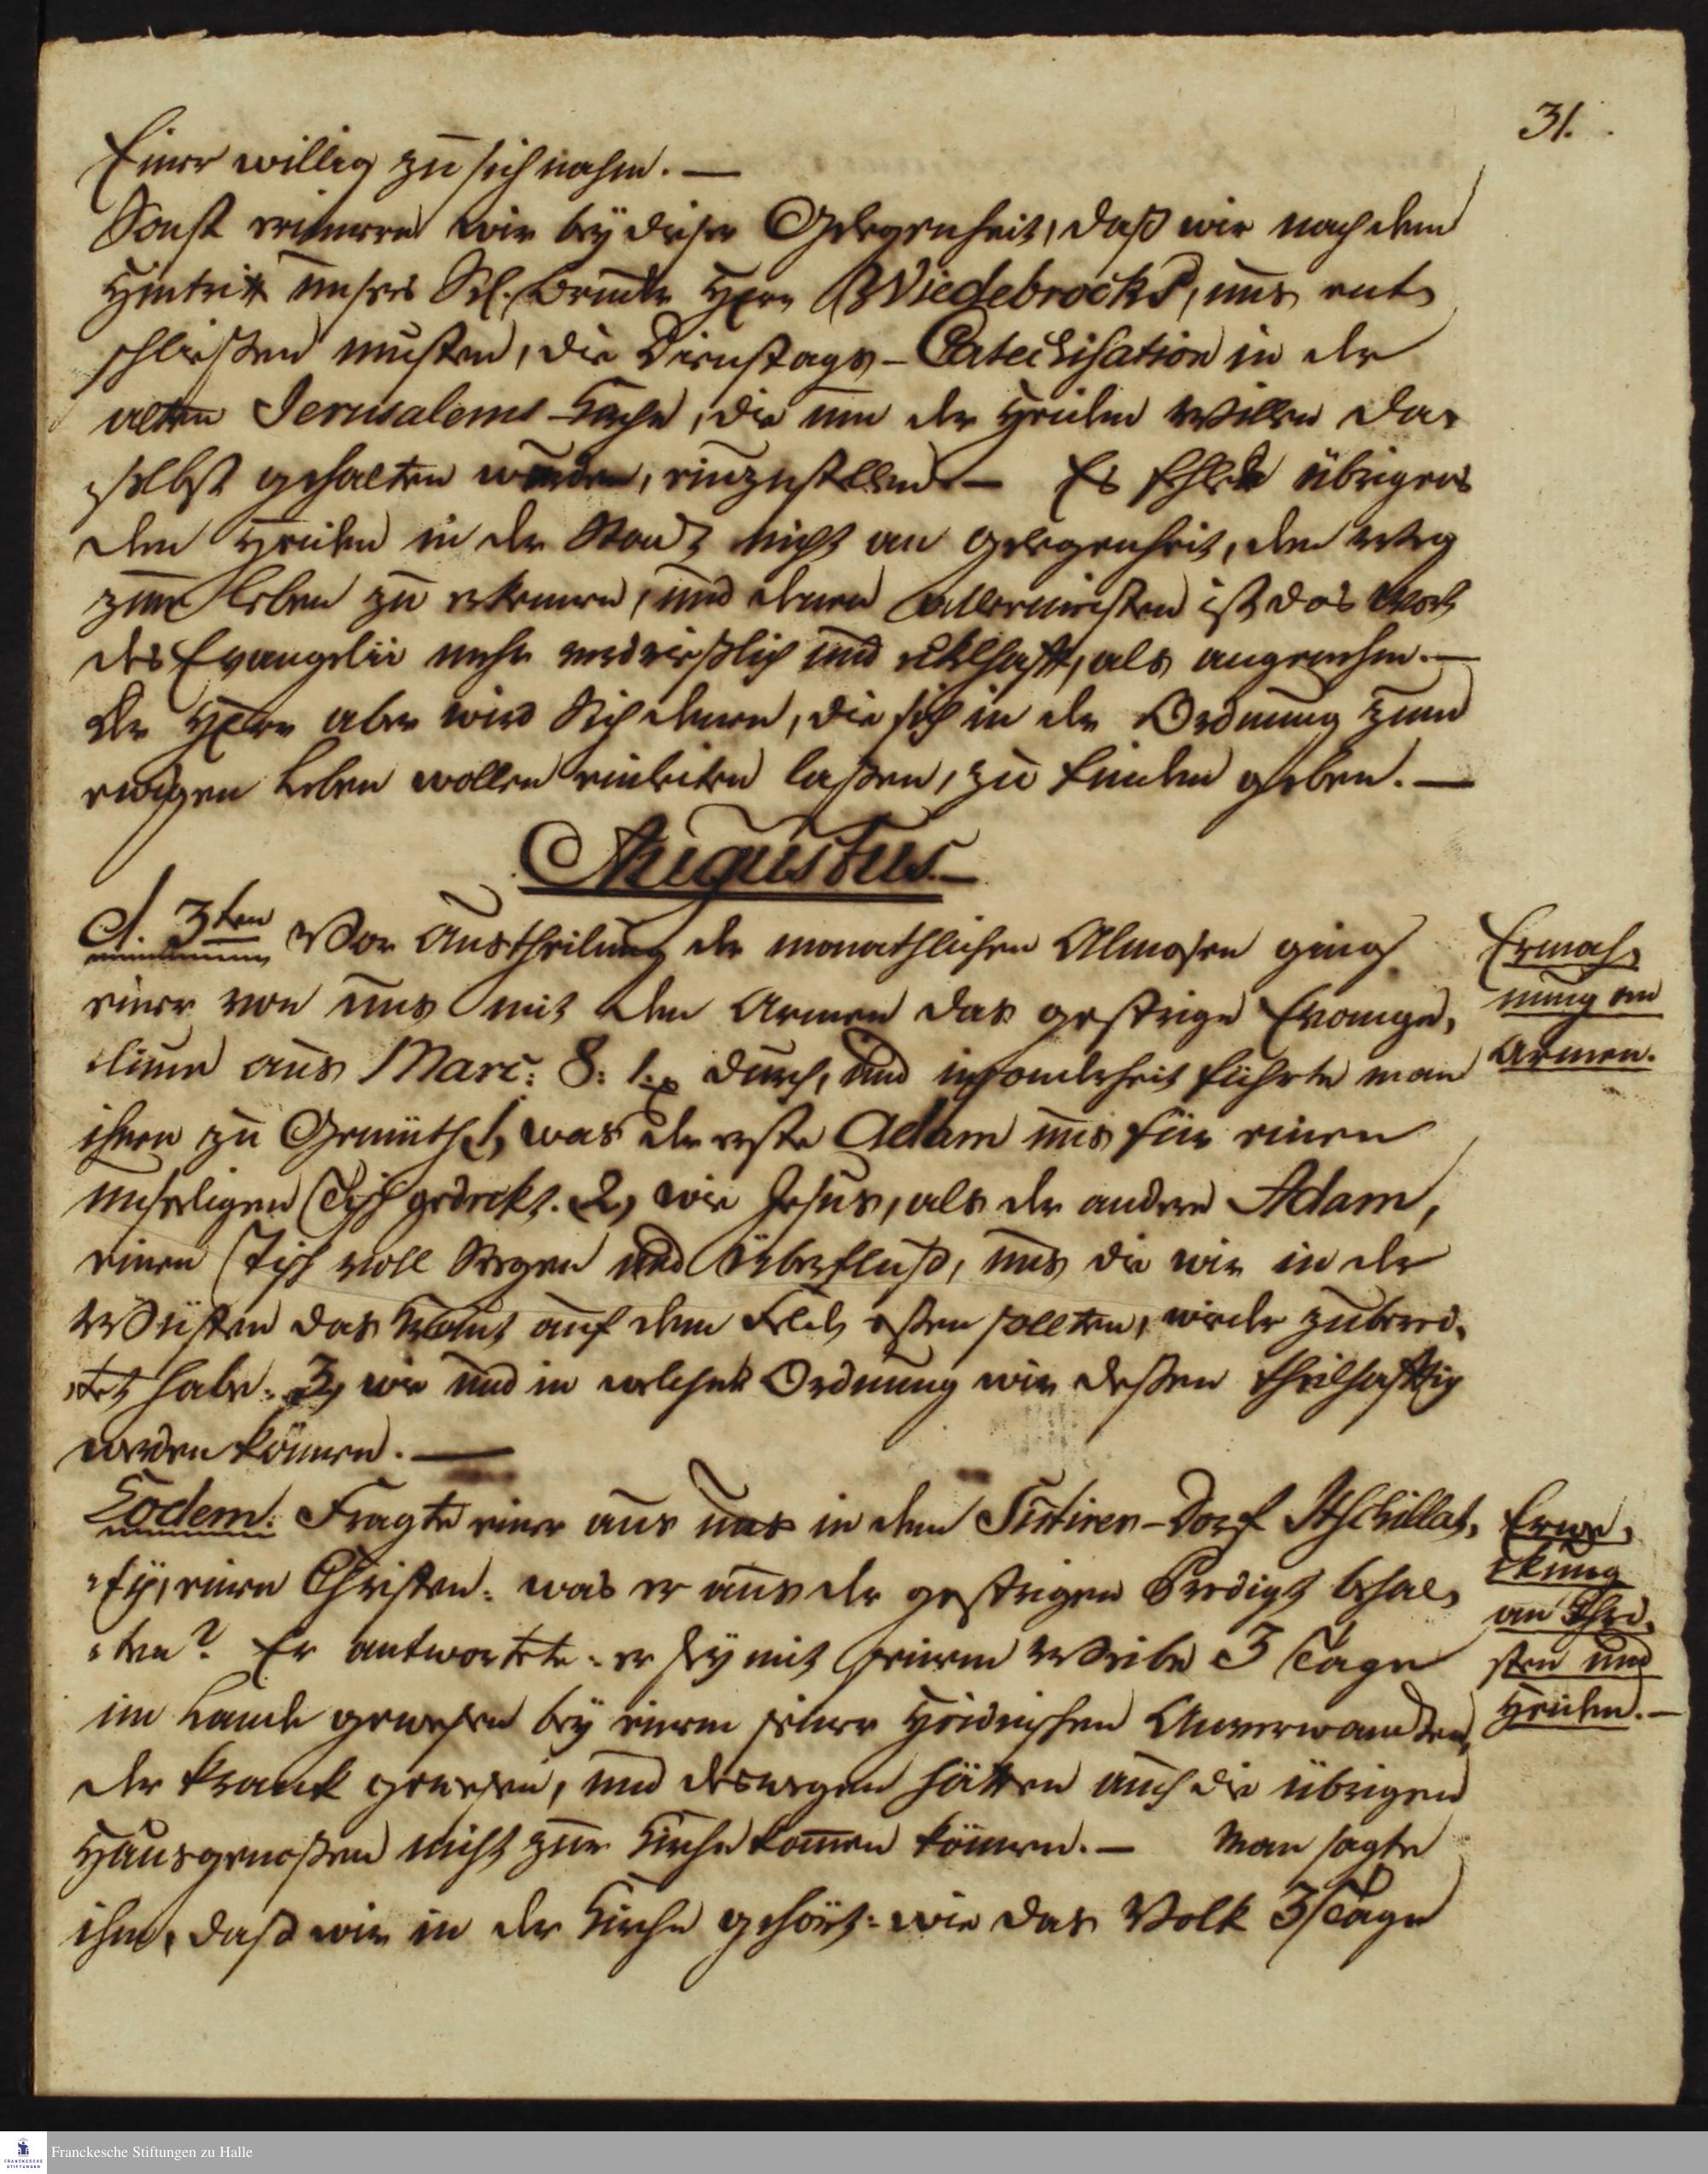 31.
Einer willig zu sich nahm. —
Sonst erinnern wir bey dieser Gelegenheit, daß wir nach dem
Hintritt unsers Sel. Bruders Herrn Wiedebrocks, uns ent-
schließen musten, die Dienstags-Catechisation in der
alten Jerusalems-Kirche, die um der Heiden Willen da-
selbst gehalten wurden, einzustellen. — Es fehlet übrigens
den Heiden in der Stadt nicht an gelegenheit, den Weg
zum Leben zu erkennen, und denen allermeisten ist das Wort
des Evangelii mehr verdrießlich und ekelhaft, als angenehm. —
Der Herr aber wird Sich denen, die sich in der Ordnung zum
ewigen Leben wollen einleiten laßen, zu finden geben. —
Augustus. —
d. 3ten Vor Austheilung der monathlichen Almosen ging
einer von uns mit den Armen das gestrige Evange-
lium aus Marc: 8: 1. durch, und insonderheit führte man
ihnen zu Gemüth 1, was der erste Adam uns für einen
unseligen Tisch gedeckt. 2, wie Jesus, als der andere Adam,
einen Tisch voll Segen und Überfluß, uns die wir in der
Wüsten das Kraut auf dem Felde eßen sollten, wieder zuberei-
tet habe. 3, wie und in welcher Ordnung wir deßen theilhafftig
werden können. —
Ermah-
nung an
Armen.
Eodem. Fragte einer aus uns in dem Fischer-Dorf
einen Christen: was er aus der gestrigen Predigt behal-
ten? Er antwortete: er sey mit seinem Weibe 3 Tage
im Lande gewesen bey einem seiner Heidnischen Anverwandten,
der krank gewesen, und deswegen hätten auch die übrigen
Hausgenoßen nicht zur Kirche kommen können. — Man sagte
ihm, daß wir in der Kirche gehört: wie das Volk 3 Tage
Erwe-
ckung
an Chri-
sten und
Heiden. —
Franckesche Stiftungen zu Halle